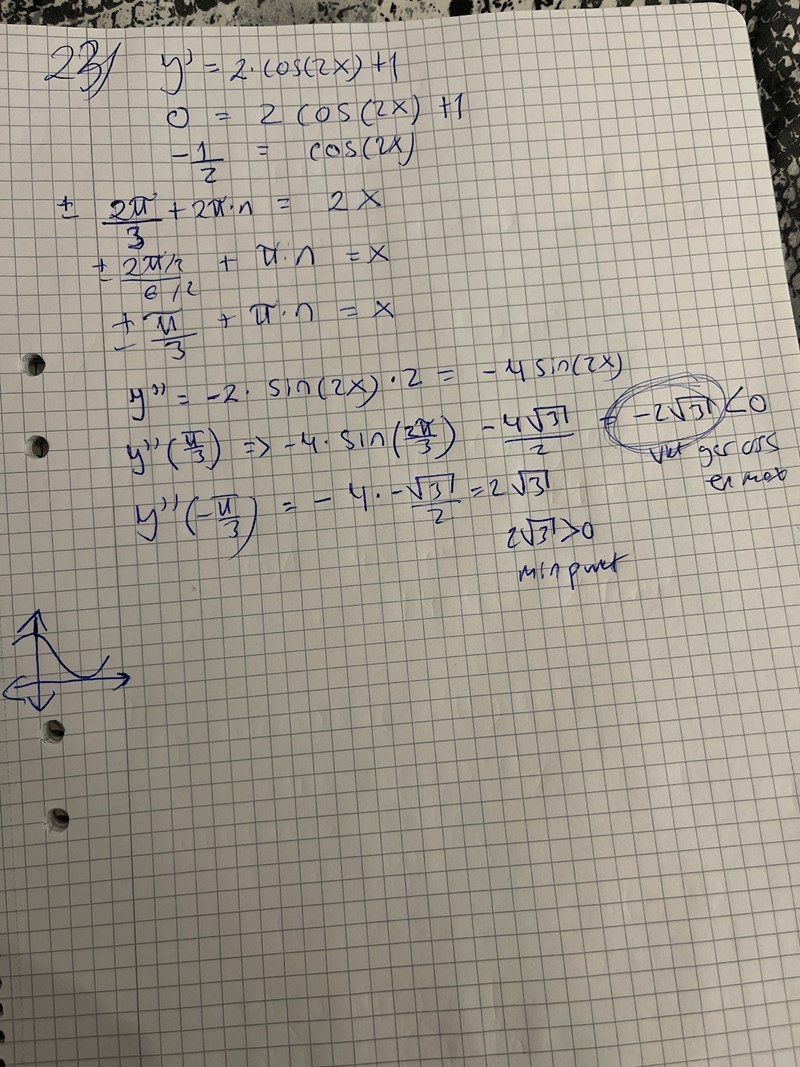 23) y' = 2·cos(2x)+1
0 = 2 cos(2x) +1
-1/2 = cos(2x)
± 2π/3 + 2π·n = 2x
± 2π/2 / 6/2 + π·n = x
± π/3 + π·n = x
y'' = -2· sin(2x)·2 = -4 sin(2x)
y''(π/3) => -4· sin(2π/3) -4√3/2 = -2√3 < 0
ger oss
en max
y''(-π/3) = -4·-√3/2 = 2√3
2√3>0
min punkt